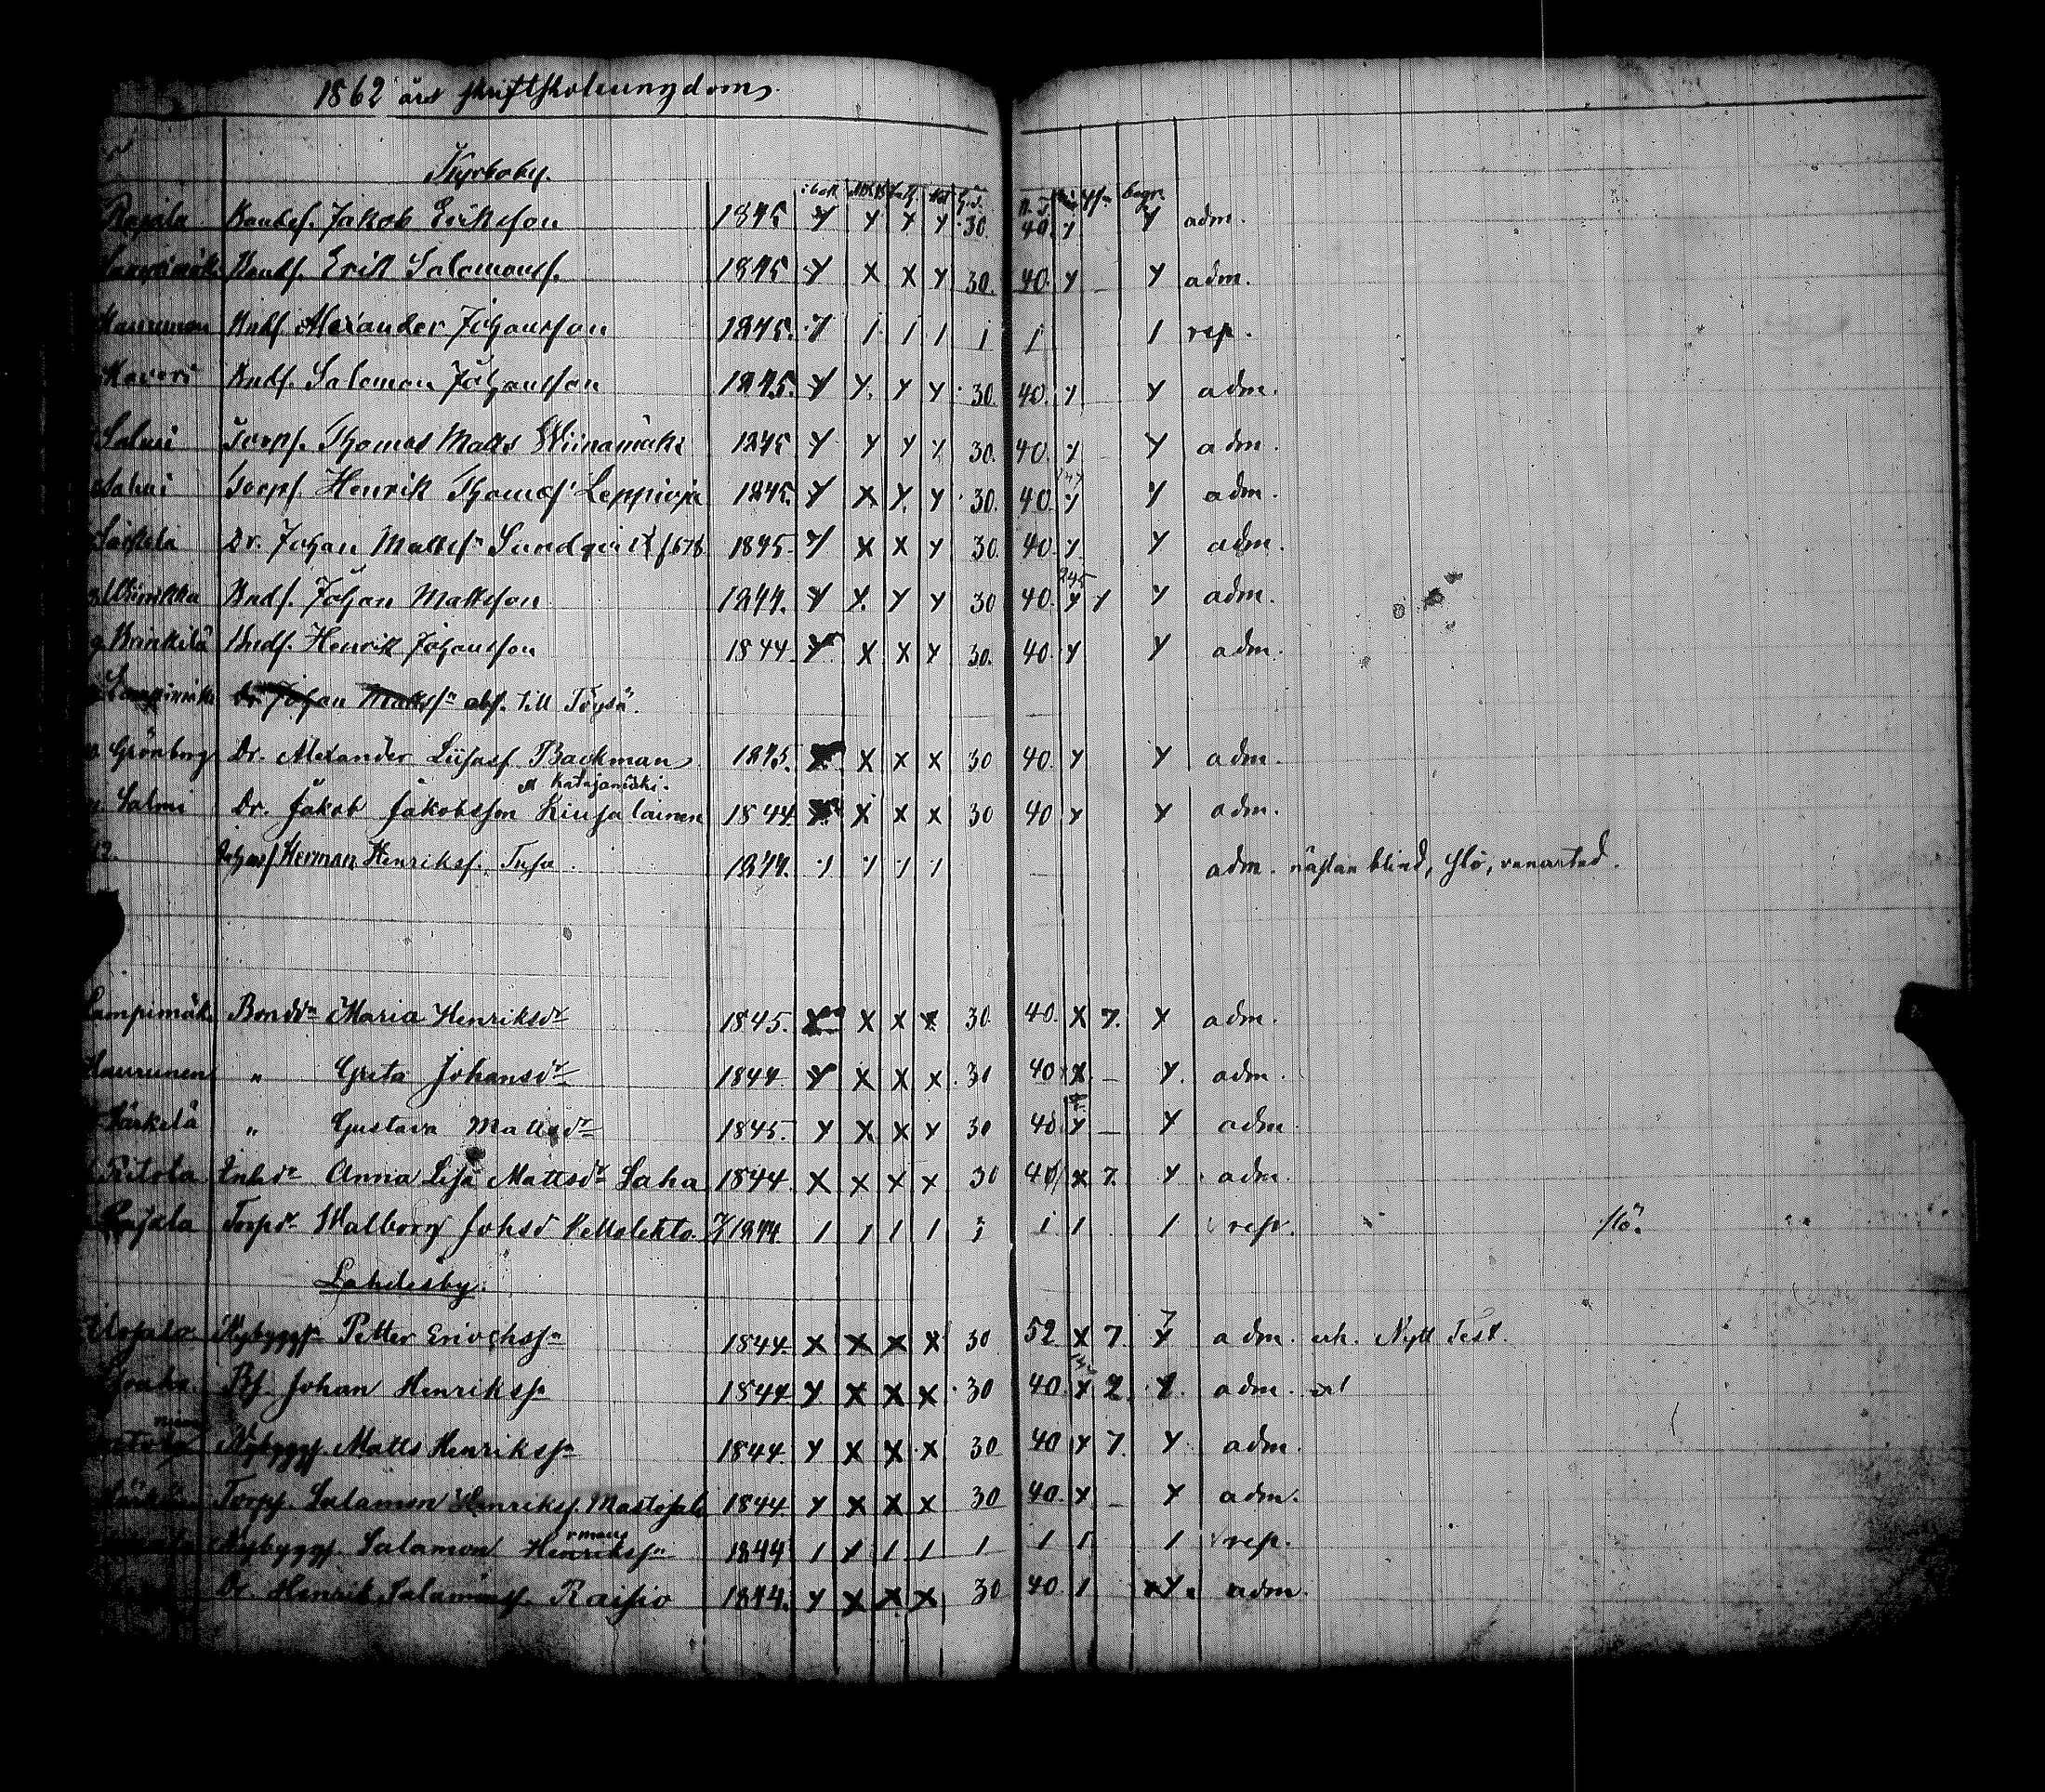 1862 års skriftskoleungdom.
Kyrkoby.
i bok G.T. N.T. begr.
Rajala Bondes. Jakob Eriksson 1845 Y Y Y Y 30. 40. Y Y adm.
Bonds. Erik Salomonss. 1845 Y X X Y 30. 40. Y _ Y adm.
Kaurunen Bnds Alexander Johansson 1845. Y 1 1 1 1 1 1 rep.
Bnds. Salomon Johansson 1845. Y Y. Y Y 30. 40. Y Y adm.
Salmi Torps. Thomas Matts Wiinamäki 1845 Y Y Y Y 30. 40. Y Y adm.
Salmi Torps. Henrik Thomass Leppioja 1845. Y X Y. Y 30. 40. Y Y adm.
Särkelä Dr. Johan Matts:n Sundqvist 1845. Y X X Y 30. 40. Y. Y adm.
Bnds. Johan Mattsson 1844. Y Y. Y Y 30 40. Y Y Y adm.
Brinkilä Bnds. Henrik Johansson 1844. Y X X Y 30. 40. Y Y adm.
Dr Johan Matts:n abs. till Töysä.
Grönborg Dr. Alexander Liisass. Backman 1845. X X X 30 40. Y Y adm.
Katajamäki.
Salmi Dr. Jakob Jakobsson Kiusalainen 1844 X X X 30 40 Y Y adm.
12. Herman Henrikss. Tusa 1844. 1 1 1 1 adm. nästan blind, slö, vanartad.
Lampimäki Bondd:r Maria Henriksd:r 1845. X X X X 30. 40. X 7. X adm.
Kaurunen " Greta Johansd:r 1844 Y X X X. 30 40 X _ Y. adm.
Särkelä " Gustava Mattsd:r 1845. Y X X Y 30 40. Y _ Y adm.
Ritola Inhd:r Anna Lisa Mattsd:r Saha 1844. X X X X 30 40 X 7. Y adm.
Rajala Torpd:r Walborg Johsd 1844 1 1 1 1 1 1 1 rep. slö.
Lahdesby.
Nybyggs:n Petter Erichss:n 1844. X X X X 30 52 X 7. Y adm. erh. Nytt Test.
Bs. Johan Henrikss:n 1844 Y. X X X. 30 40. Y 2. Y. adm.
Nybyggs. Matts Henrikss:n 1844. Y X X X 30 40 Y 7. Y adm.
Torps. Salamon Henrikss. 1844. Y X X X 30 40. X. _ Y adm.
rmans
Nybyggs. Salamon Henrikss:n 1844 1 1 1 1 1 1 1 rep.
Dr. Henrik Salamonss. Raisio 1844. Y X X X 30 40. 1 Y. adm.